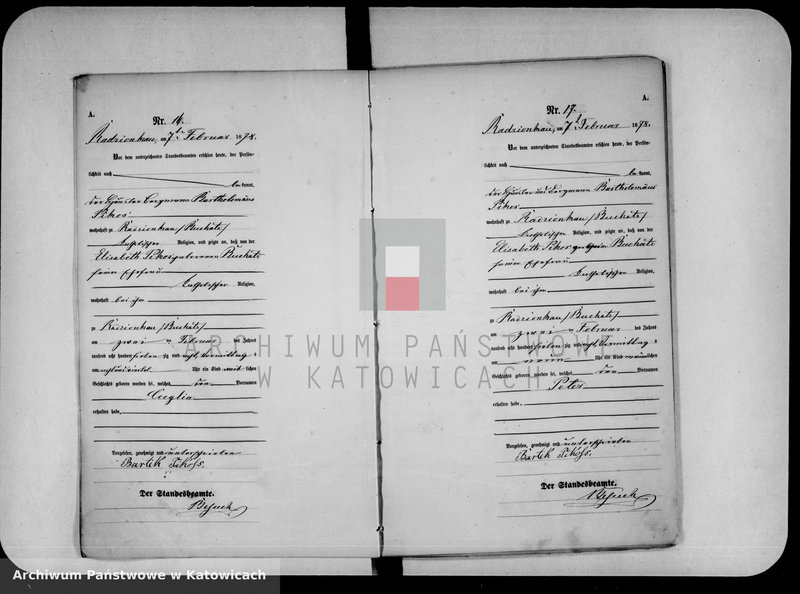 A.
Nr. 16.
Radzionkau, am 7ten Februar 1878.
Vor dem unterzeichneten Standesbeamten erschien heute, der Persön-
lichkeit nach
kannt,
der Häusler Bergmann Bartholomäus
Pikos
wohnhaft zu Radzionkau /Buchatz/
katholischer Religion, und zeigte an, daß von der
Elisabeth Pikos geborenen Buchatz
seiner Ehefrau
katholischer Religion,
wohnhaft bei ihm
zu Radzionkau /Buchatz/
am zwei ten Februar des Jahres
tausend acht hundert siebenzig und acht Vormittag s
um Uhr ein Kind weib lichen
Geschlechts geboren worden sei, welches den Vornamen
Cecylia
erhalten habe.
Vorgelesen, genehmigt und unterschrieben
Bartek Pikoss.
Der Standesbeamte.
A.
Nr. 17.
Radzionkau, am 7ten Februar 1878.
Vor dem unterzeichneten Standesbeamten erschien heute, der Persön-
lichkeit nach
kannt,
der Häusler und Bergmann Bartholomäus
Pikos
wohnhaft zu Radzionkau /Buchatz/
katholischer Religion, und zeigte an, daß von der
Elisabeth Pikos geborenen Buchatz
seiner Ehefrau
katholischer Religion,
wohnhaft bei ihm
zu Radzionkau /Buchatz/
am zwei ten Februar des Jahres
tausend acht hundert siebenzig und acht Vormittag s
um neun Uhr ein Kind männlichen
Geschlechts geboren worden sei, welches den Vornamen
Peter
erhalten habe.
Vorgelesen, genehmigt und unterschrieben
Bartek Pikoss.
Der Standesbeamte.
ARCHIWUM PAŃSTWOWE
W KATOWICACH
Archiwum Państwowe w Katowicach